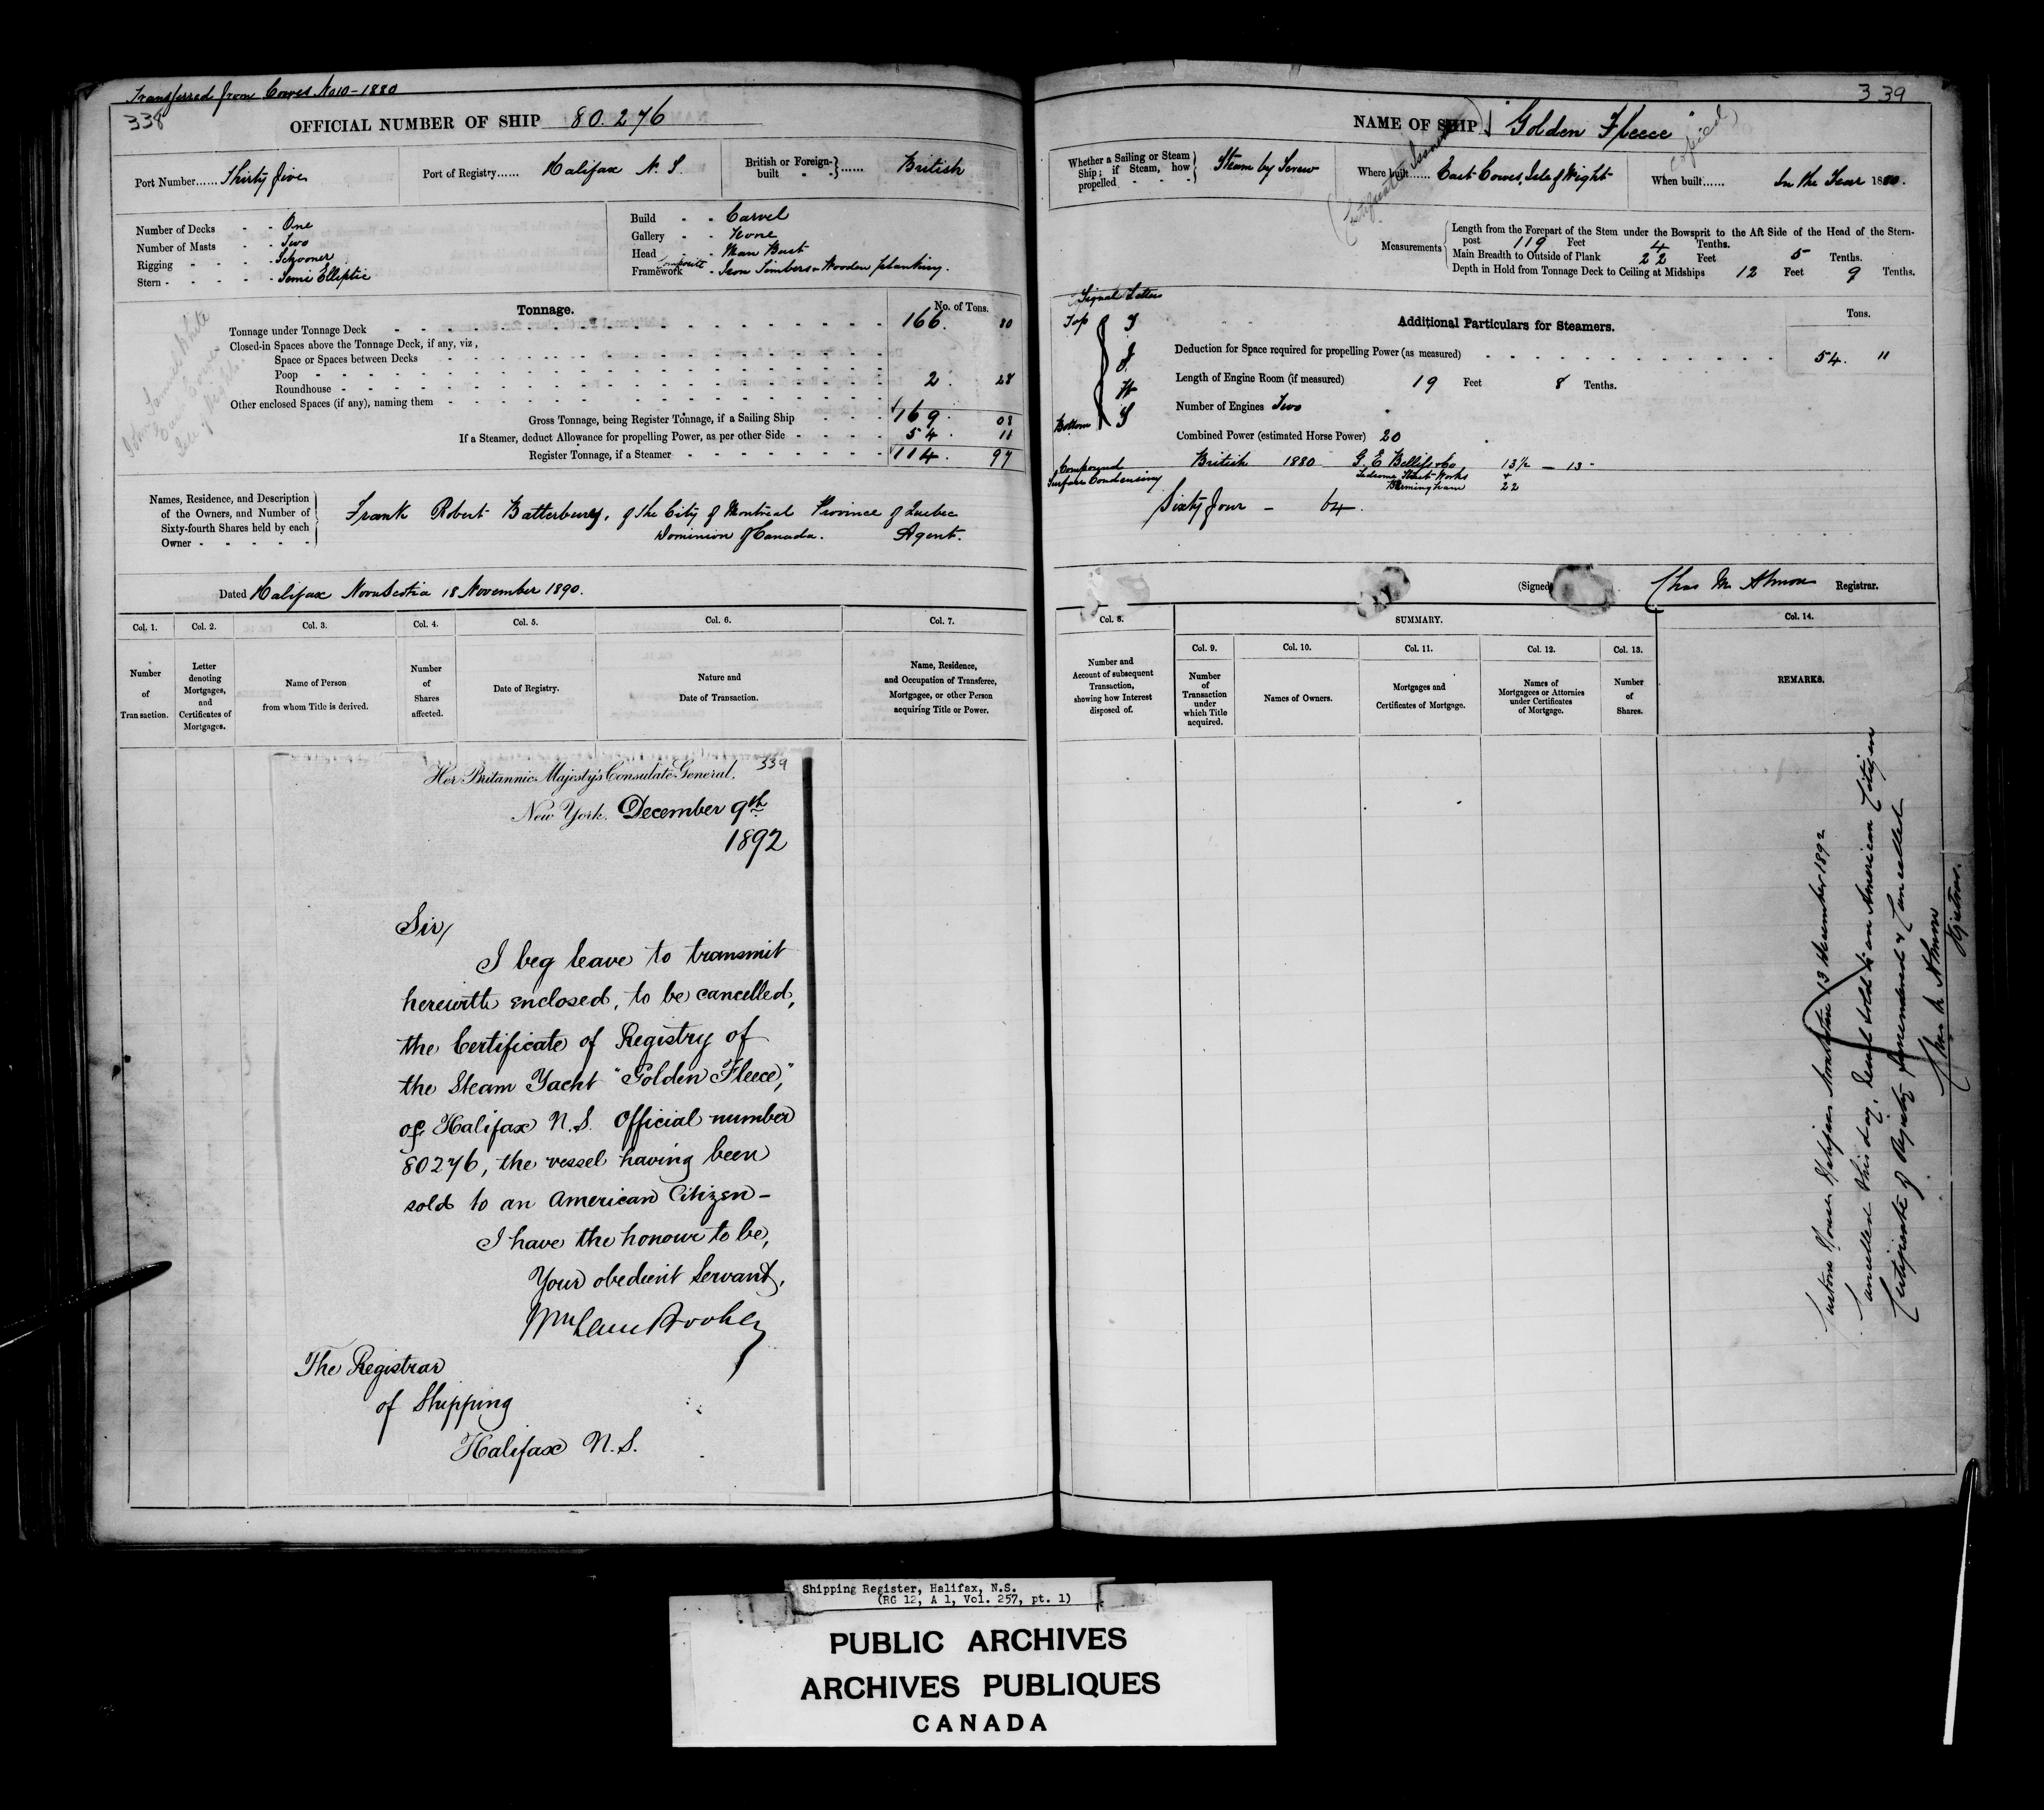 Transferred from Cowes No 10 - 1880
338
OFFICIAL NUMBER OF SHIP 80.276
Port Number...... Thirty five
Port of Registry...... Halifax N. S.
British or Foreign-built ...... British
Number of Decks - - One
Number of Masts - - Two
Rigging - - - - Schooner
Stern - - - - - Semi Elliptic
Build - - Carvel
Gallery - - None
Head - - Man Bust
Framework - Composite Iron Timbers & Wooden planking.
Tonnage.
No. of Tons.
Tonnage under Tonnage Deck 166. 80
Closed-in Spaces above the Tonnage Deck, if any, viz,
Space or Spaces between Decks
Poop
Roundhouse 2. 28
Other enclosed Spaces (if any), naming them
Gross Tonnage, being Register Tonnage, if a Sailing Ship 169. 08
If a Steamer, deduct Allowance for propelling Power, as per other Side 54. 11
Register Tonnage, if a Steamer 114. 97
John Samuel White
East Cowes
Isle of Wight
Names, Residence, and Description
of the Owners, and Number of
Sixty-fourth Shares held by each
Owner
Frank Robert Batterbury, of the City of Montreal Province of Quebec
Dominion of Canada. Agent.
Dated Halifax Nova Scotia 18 November 1890.
Col. 1. Col. 2. Col. 3. Col. 4. Col. 5. Col. 6. Col. 7.
Number of Transaction.
Letter denoting Mortgages, and Certificates of Mortgages.
Name of Person from whom Title is derived.
Number of Shares affected.
Date of Registry.
Nature and Date of Transaction.
Name, Residence, and Occupation of Transferee, Mortgagee, or other Person acquiring Title or Power.
339
Her Britannic Majesty's Consulate General.
New York. December 9th
1892
Sir,
I beg leave to transmit
herewith enclosed, to be cancelled,
the Certificate of Registry of
the Steam Yacht "Golden Fleece,"
of Halifax N.S. Official number
80276, the vessel having been
sold to an American Citizen -
I have the honour to be,
Your obedient Servant,
The Registrar
of Shipping
Halifax N.S.
339
NAME OF SHIP "Golden Fleece"
(Certificate Issued)
copied
Whether a Sailing or Steam
Ship; if Steam, how
propelled - - -
Steam by Screw
Where built...... East Cowes, Isle of Wight
When built...... In the Year 1880.
Measurements
Length from the Forepart of the Stem under the Bowsprit to the Aft Side of the Head of the Stern-
post 119 Feet 4 Tenths.
Main Breadth to Outside of Plank 22 Feet 5 Tenths.
Depth in Hold from Tonnage Deck to Ceiling at Midships 12 Feet 9 Tenths.
Signal Letters
Top
Bottom
Additional Particulars for Steamers.
Tons.
Deduction for Space required for propelling Power (as measured) 54. 11
Length of Engine Room (if measured) 19 Feet 8 Tenths.
Number of Engines Two
Combined Power (estimated Horse Power) 20
Compound
Surface Condensing
British 1880 G. E. Bellis & Co 13½ - 13
Ledsome Street Works +
Birmingham 22
Sixty four - 64.
(Signed) Chas M. Almon Registrar.
Col. 8. SUMMARY. Col. 14.
Col. 9. Col. 10. Col. 11. Col. 12. Col. 13.
Number and Account of subsequent Transaction, showing how Interest disposed of.
Number of Transaction under which Title acquired.
Names of Owners.
Mortgages and Certificates of Mortgage.
Names of Mortgagees or Attornies under Certificates of Mortgage.
Number of Shares.
REMARKS.
Custom House Halifax Nova Scotia 13 December 1892
Cancelled this day, Vessel sold to an American Citizen
Certificate of Registry surrendered & Cancelled
Chas M Almon
Registrar.
Shipping Register, Halifax, N.S.
(RG 12, A 1, Vol. 257, pt. 1)
PUBLIC ARCHIVES
ARCHIVES PUBLIQUES
CANADA